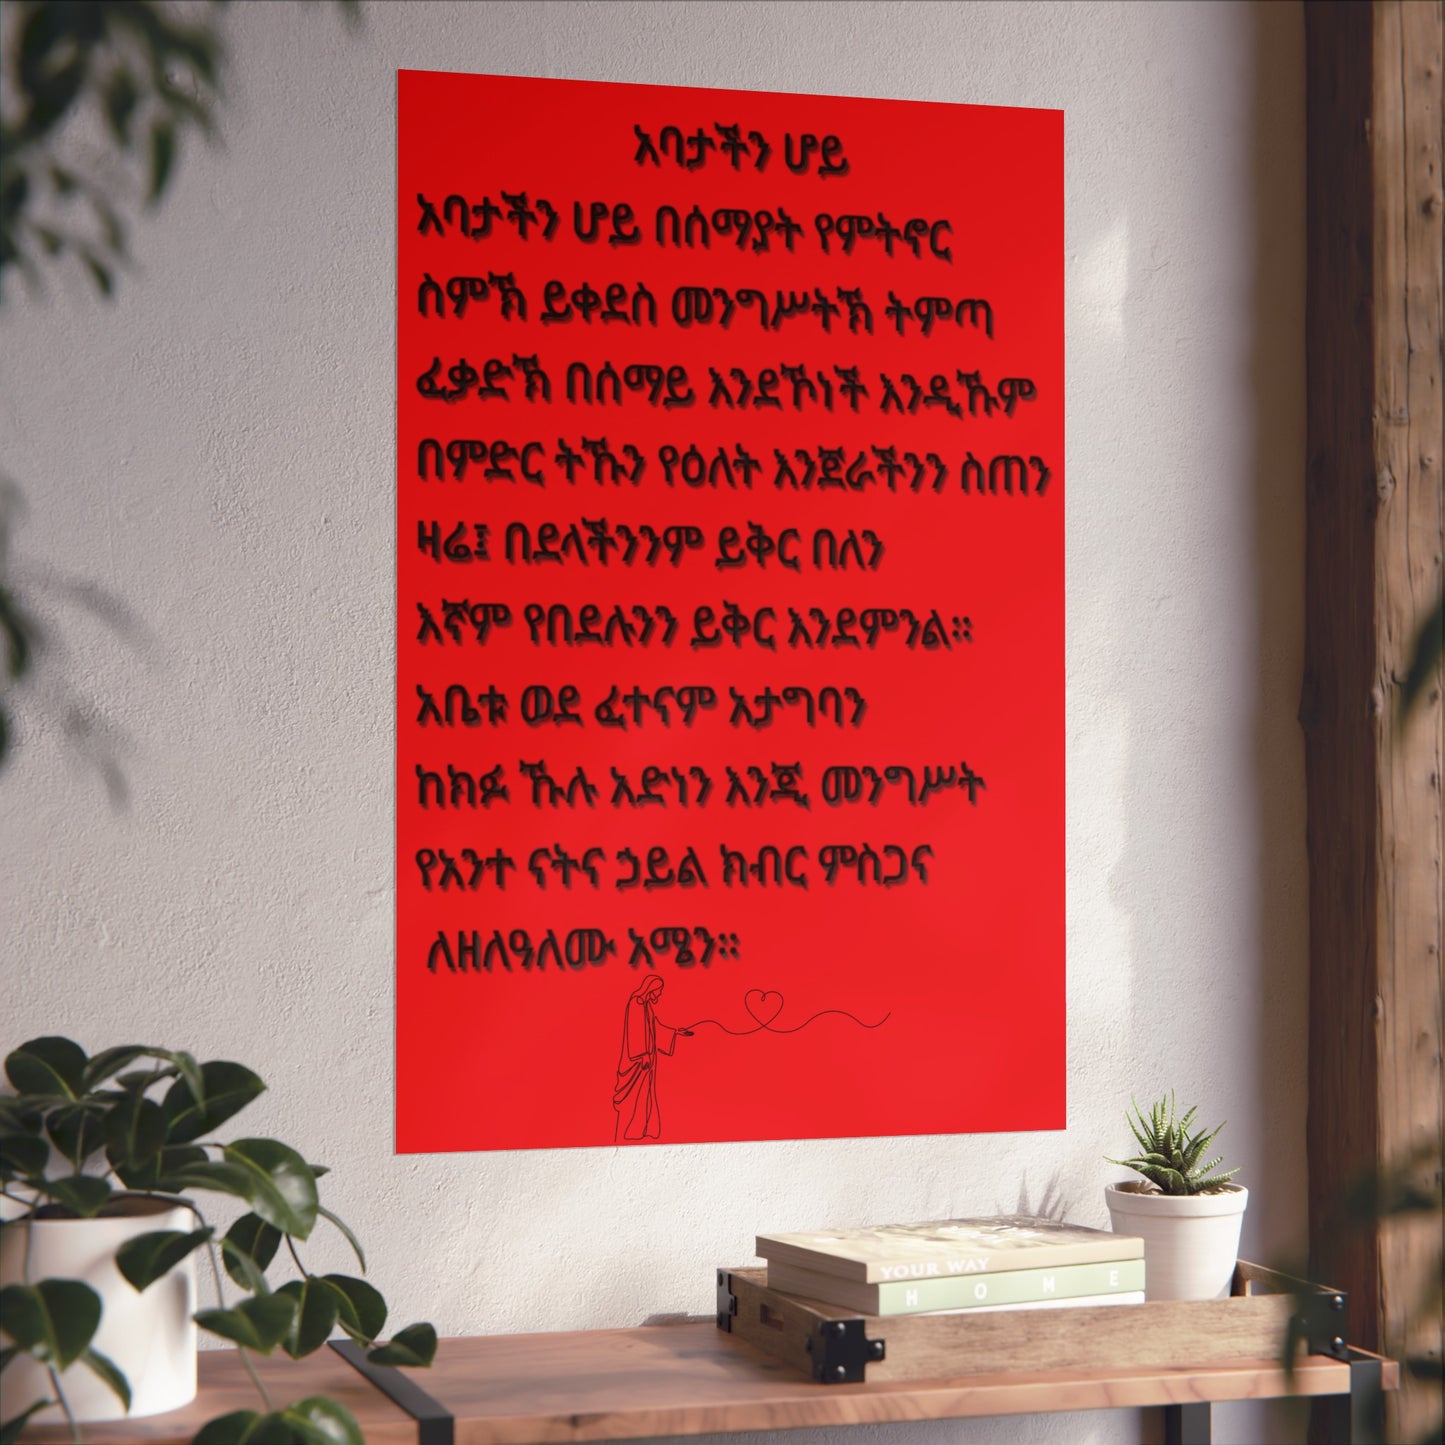 አባታችን ሆይ
አባታችን ሆይ በሰማያት የምትኖር
ስምኽ ይቀደስ መንግሥትኽ ትምጣ
ፈቃድኽ በሰማይ እንደኾነች እንዲኹም
በምድር ትኹን የዕለት እንጀራችንን ስጠን
ዛሬ፤ በደላችንንም ይቅር በለን
እኛም የበደሉንን ይቅር እንደምንል።
አቤቱ ወደ ፈተናም አታግባን
ከክፉ ኹሉ አድነን እንጂ መንግሥት
የአንተ ናትና ኃይል ክብር ምስጋና
ለዘለዓለሙ አሜን።
YOUR WAY
HOME